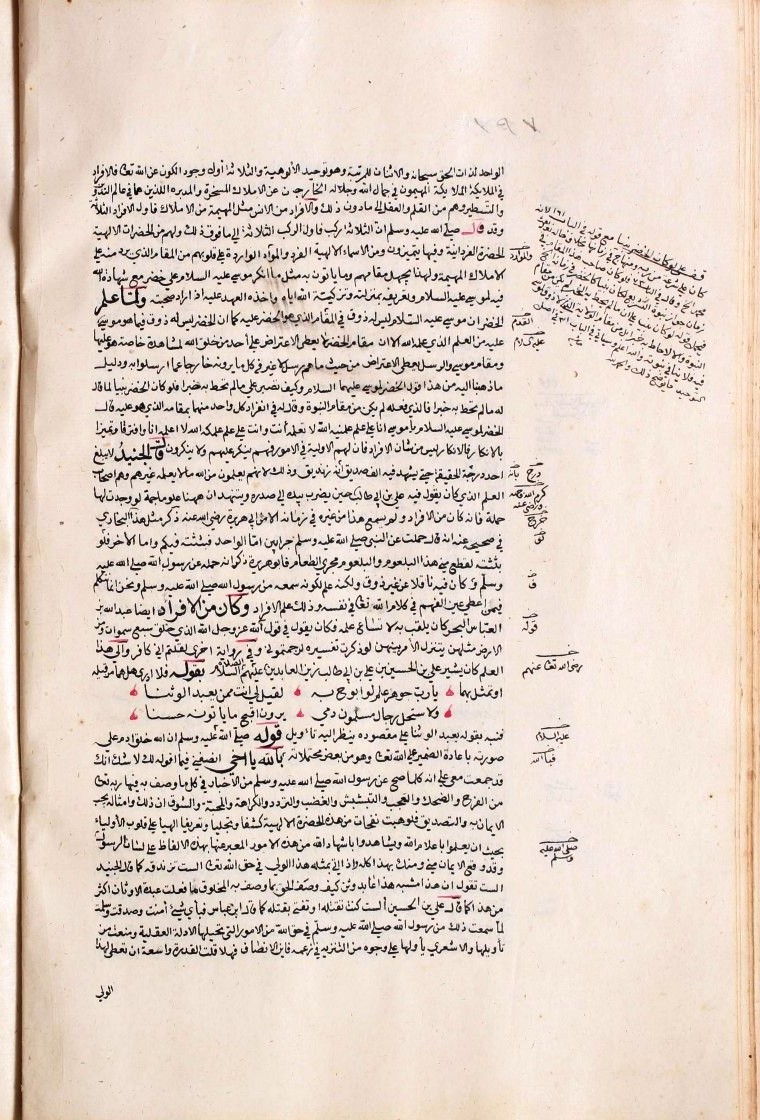 الواحد لذات الحق سبحانه والاثنان للمرتبة وهو توحيد الألوهية والثلاثة أول وجود الكون عن الله تعا فالافراد
في الملائكة الملائكة المهيمون في جمال الله وجلاله الخارجون عن الاملاك المسخرة والمدبره اللذين هما في عالم التدوين
والتسطير وهم من القلم والعقل الى مادون ذلك والافراد من الانس مثل المهيمة من الاملاك فاول الافراد الثلاثة
وقد قال صلى الله عليه وسلم ان الثلاثة ركب فاول الركب الثلاثة الى ما فوق ذلك ولهم من الحضرات الالهية
الحضرة الفردانية وفيها يتميزون ومن الاسماء الالهية الفرد والمواد الواردة على قلوبهم من المقام الذي يرد منه على
الاملاك المهيمة ولهذا يجهل مقامهم وما يأتون به مثل ما انكر موسى عليه السلام على خضر مع شهادة الله
فيه لموسى عليه السلام وتعريفه بمنزلته وتزكية الله اياه واخذه العهد عليه اذ اراد صحبته ولما علم
الخضر ان موسى عليه السلام ليس له ذوق في المقام الذي هو الخضر عليه كما ان الخضر ليس له ذوق فيما هو موسى
عليه من العلم الذي علمه الله الا ان مقام الخضر لا يعطى الاعتراض على أحد من خلق الله لمشاهدة خاصة هو عليها
ومقام موسى والرسل يعطى الاعتراض من حيث ما هم رسل لا غير في كل ما يرونه خارجا عما ارسلوا به ودليل
ما ذهبنا اليه من هذا قول الخضر لموسى عليهما السلام وكيف تصبر على مالم تحط به خبرا فلو كان الخضر نبيا لما قال
له مالم تحط به خبرا فالذي فعله لم يكن من مقام النبوة وقال له في انفراد كل واحد منهما بمقامه الذي هو عليه قال
الخضر لموسى عليه السلام يا موسى انا على علم علمنيه الله لا تعلمه أنت وانت على علم علمكه الله لا اعلمه انا وافترقا وتميزا
بالانكار فالانكار ليس من شأن الافراد فان لهم الاولية في الامور فهم ينكر عليهم ولا ينكرون قال الجنيد لا يبلغ
احد درجة الحقيقة حتى يشهد فيه الف صديق أنه زنديق وذلك لانهم يعلمون من الله مالا يعلمه غيرهم وهم اصحاب
العلم الذي كان يقول فيه علي بن ابي طالب حين يضرب بيده الى صدره ويتنهد ان ههنا علوما جمة لو وجدت لها
حملة فانه كان من الافراد ولم يسمع هذا من غيره في زمانه الا من ابي هريرة رضي الله عنه ذكر مثل هذا البخاري
في صحيحه عنه انه قال حملت عن النبي صلى الله عليه وسلم جرابين اما الواحد فبثثته فيكم واما الاخر فلو
بثثته لقطع مني هذا البلعوم والبلعوم مجرى الطعام فابو هريرة ذكر انه حمله عن رسول الله صلى الله عليه
وسلم فكان فيه ناقلا عن غير ذوق ولكنه علم لكونه سمعه من رسول الله صلى الله عليه وسلم ونحن انما نتكلم
فيمن اعطى عين الفهم في كلام الله تعا في نفسه وذلك علم الافراد وكان من الافراد ايضا عبد الله بن
العباس البحر كان يلقب به لاتساع علمه فكان يقول في قول الله عز وجل الله الذي خلق سبع سموات ومن
الارض مثلهن يتنزل الامر بينهن لو ذكرت تفسيره لرجمتموني وفي رواية اخرى لقلتم اني كافر والى هذا
العلم كان يشير علي بن الحسين بن علي بن ابي طالب زين العابدين عليهم السلام بقوله فلا ادري هل هما من قبله
او تمثل بهما يا رب جوهر علم لو ابوح به لقيل لي انت ممن يعبد الوثنا
ولاستحل رجال مسلمون دمي يرون اقبح ما يأتونه حسنا
فنبه بقوله يعبد الوثنا على مقصوده ينظر اليه تأويل قوله صلى الله عليه وسلم ان الله خلق ادم على
صورته باعادة الضمير على الله تعا وهو من بعض محتملاته بالله يا اخي انصفني فيما اقوله لك لا شك انك
قد جمعت معي على انه كلما صح عن رسول الله صلى الله عليه وسلم من الأخبار في كل ما وصف به فيها ربه تعا
من الفرح والضحك والتعجب والتبشبش والغضب والتردد والكراهة والمحبة والشوق ان ذلك وامثاله يجب
الايمان به والتصديق فلو هبت نفحات من هذه الحضرة الالهية كشفا وتجليا وتعريفا الهيا على قلوب الأولياء
بحيث ان يعلموا باعلام الله ويشاهدوا باشهاد الله من هذه الامور المعبر عنها بهذه الالفاظ على لسان الرسول
وقد وقع الايمان مني ومنك بهذا كله اذا اتى بمثله هذا الولي في حق الله تعا الست تزندقه كما قال الجنيد
الست تقول ان هذا مشبه هذا عابد وثن كيف وصف الحق بما وصف به المخلوق ما فعلت عبدة الاوثان اكثر
من هذا كما قال علي بن الحسين ألست كنت تقتله او تفتي بقتله كما قال ابن عباس فبأي شيء آمنت وصدقت وسلمت
لما سمعت ذلك من رسول الله صلى الله عليه وسلم في حق الله من الامور التي تحيلها الادلة العقلية ومنعت من
تأويلها والاشعري يأولها على وجوه من التنزيه في زعمه فاين الانصاف فهلا قلت القدرة واسعة ان تعطي لهذا
الولي
والمواد
القدم
عليه السلام
درج
كرم الله وجهه
ورضي عنه
خرج
قوله
رضي الله تعا عنهم
عليه السلام
فبالله
صلى الله عليه
وسلم